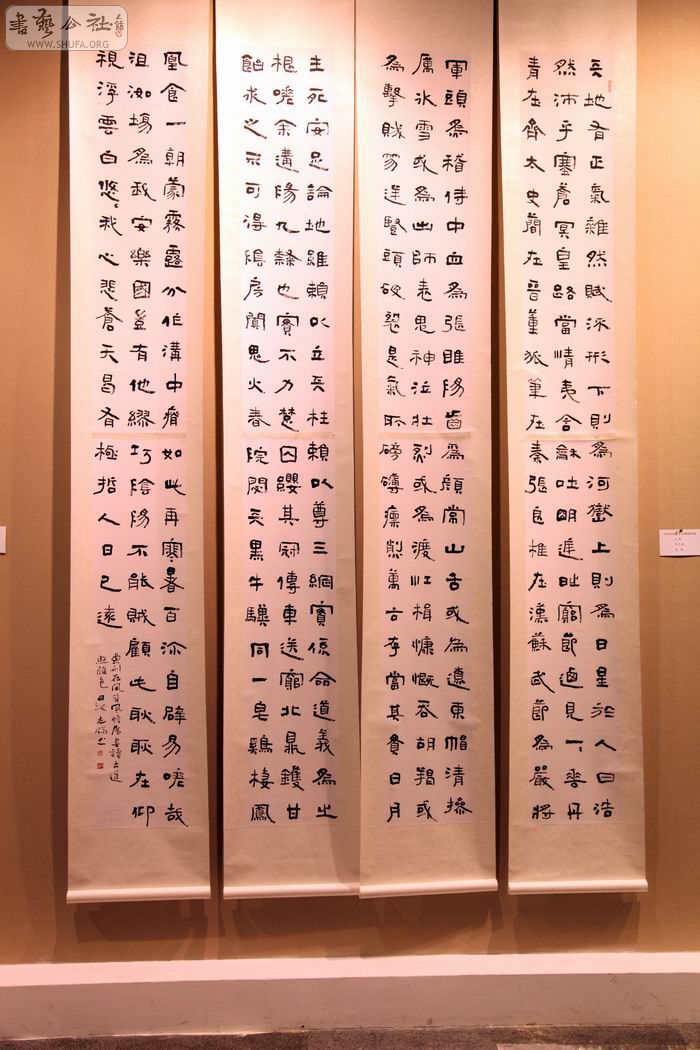 書藝公社
WWW.SHUFA.ORG
天地有正氣雜然賦流形下則為河嶽上則為日星於人曰浩
然沛乎塞蒼冥皇路當清夷含龢吐明庭時窮節迺見一一垂丹
青在齊太史簡在晉董狐筆在秦張良椎在漢蘇武節為嚴將
軍頭為嵇侍中血為張睢陽齒為顏常山舌或為遼東帽清操
厲冰雪或為出師表鬼神泣壯烈或為渡江楫慷慨吞胡羯或
為擊賊笏逆豎頭破裂是氣所磅礴凜烈萬古存當其貫日月
生死安足論地維賴以立天柱賴以尊三綱實係命道義為之
根嗟余遘陽九隸也實不力楚囚纓其冠傳車送窮北鼎鑊甘
飴求之不可得陰房闃鬼火春院閟天黑牛驥同一皂雞棲鳳
凰食一朝蒙霧露分作溝中瘠如此再寒暑百沴自辟易嗟哉
沮洳場為我安樂國豈有他繆巧陰陽不能賊顧此耿耿在仰
視浮雲白悠〻我心悲蒼天曷有極哲人日已遠
典刑在夙昔風檐展書讀古道
照顏色